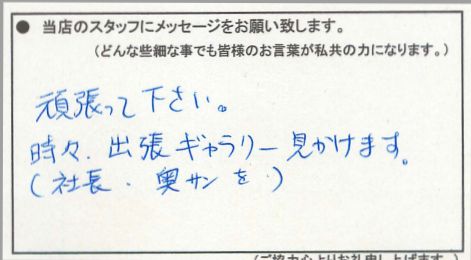 ● 当店のスタッフにメッセージをお願い致します。
(どんな些細な事でも皆様のお言葉が私共の力になります。)
頑張って下さい。
時々、出張ギャラリー見かけます。
(社長、奥サンを、)
(ご協力心よりお礼申し上げます。)